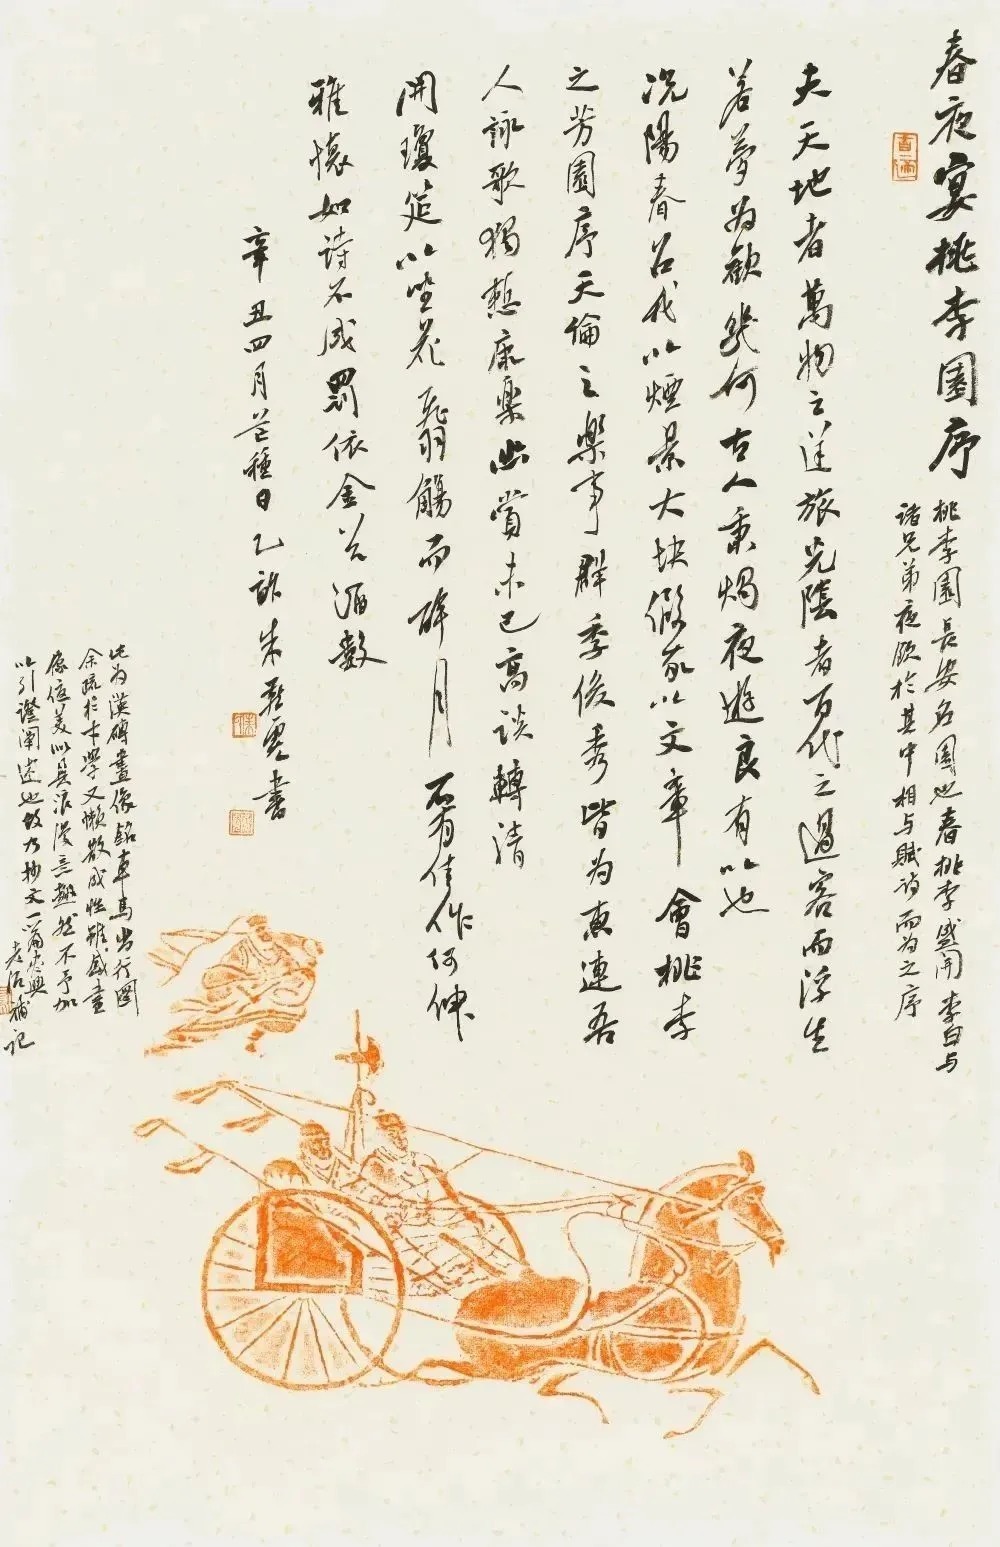 春夜宴桃李園序
桃李園長安名園也春桃李盛開李白与
諸兄弟夜飲於其中相与賦詩而为之序
夫天地者萬物之逆旅光陰者百代之過客而浮生
若夢为歡幾何古人秉燭夜遊良有以也
况陽春召我以煙景大块假我以文章會桃李
之芳園序天倫之樂事群季俊秀皆为惠連吾
人詠歌獨慙康樂幽賞未已高談轉清
開瓊筵以坐花飛羽觴而醉月不有佳作何伸
雅懷如詩不成罰依金谷酒數
辛丑四月芒種日乙 朱 雲書
此为漢磚畫像銘車馬出行圖
余疏於才學又懶散成性雖感畫
美以具浪漫意趣然不予加
以引證闡述也故乃抄文一篇 興
補记